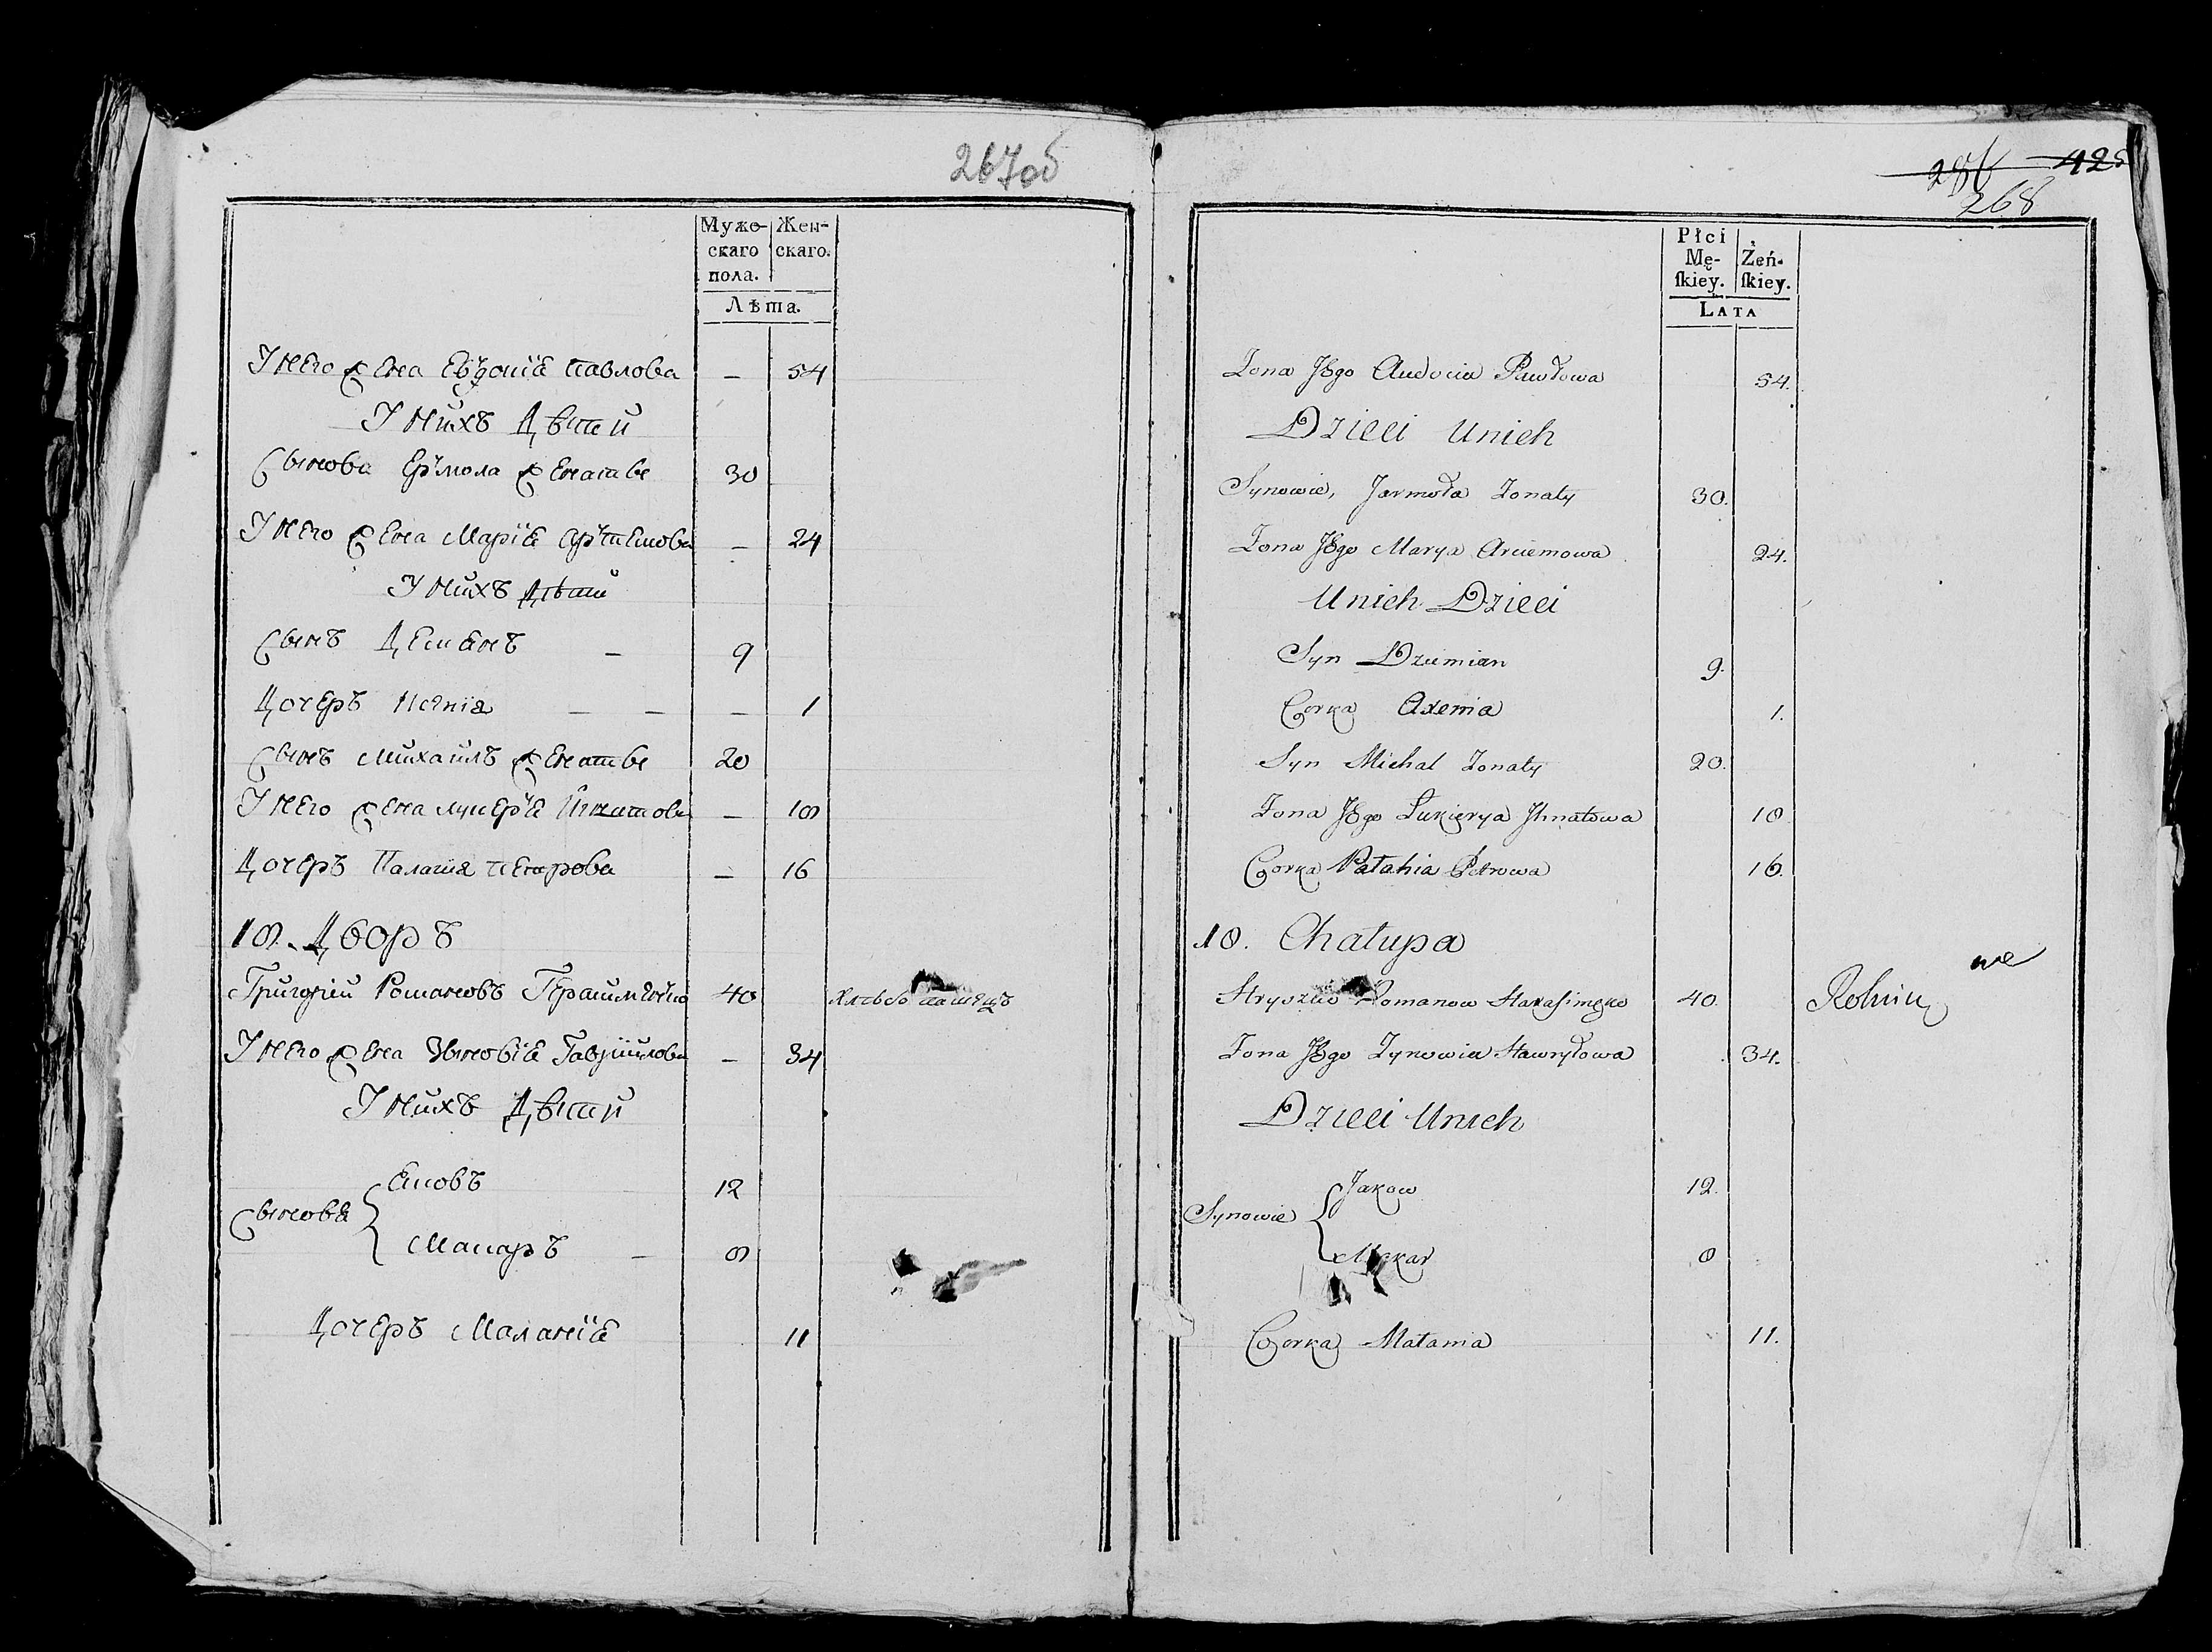 267об
Мужескаго пола. Женскаго.
Лѣта.
У него жена Евдокія Павлова — 54
У нихъ Дѣтей
Сынова Ермола женатый 30
У него жена Марія Артемова — 24
У нихъ Дѣти
Сынъ Демянъ — 9
Дочеръ Ксенія — — — 1
Сынъ Михаилъ женатый 20
У него жена Лукерія Игнатова — 18
Дочеръ Палагия Петрова — 16
18. Дворъ
Григорій Романовъ 40 Хлебо пашецъ
У него жена Зыновія Гаврилова — 34
У нихъ Дѣтей
Сыновя { Яковъ 12
Макаръ — 8
Дочеръ Маланія 11
425
268
Płci Męſkiey. Żeńſkiey.
LATA
Zona Jego Audocia Pawłowa 54.
Dzieci Unich
Synowie, Jarmoła Zonaty 30.
Zona Jego Marya Arciemowa 24.
Unich Dzieci
Syn Dziemian 9.
Corka Axenia 1.
Syn Michal Zonaty 20.
Zona Jego Łukierya Jhnatowa 18
Corka Palahia Petrowa 16.
18. Chalupa
Hryszko Romanow Harasimęko 40. Rolnicy
Zona Jego Zynowia Hawryłowa 34.
Dzieci Unich
Synowie { Jakow 12.
Makar 8
Corka Malania 11.